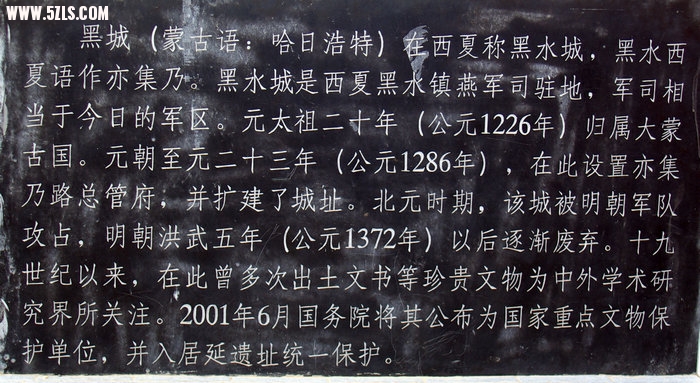 WWW.5ZLS.COM
黑城（蒙古语：哈日浩特）在西夏称黑水城，黑水西
夏语作亦集乃。黑水城是西夏黑水镇燕军司驻地，军司相
当于今日的军区。元太祖二十年（公元1226年）归属大蒙
古国。元朝至元二十三年（公元1286年），在此设置亦集
乃路总管府，并扩建了城址。北元时期，该城被明朝军队
攻占，明朝洪武五年（公元1372年）以后逐渐废弃。十九
世纪以来，在此曾多次出土文书等珍贵文物为中外学术研
究界所关注。2001年6月国务院将其公布为国家重点文物保
护单位，并入居延遗址统一保护。